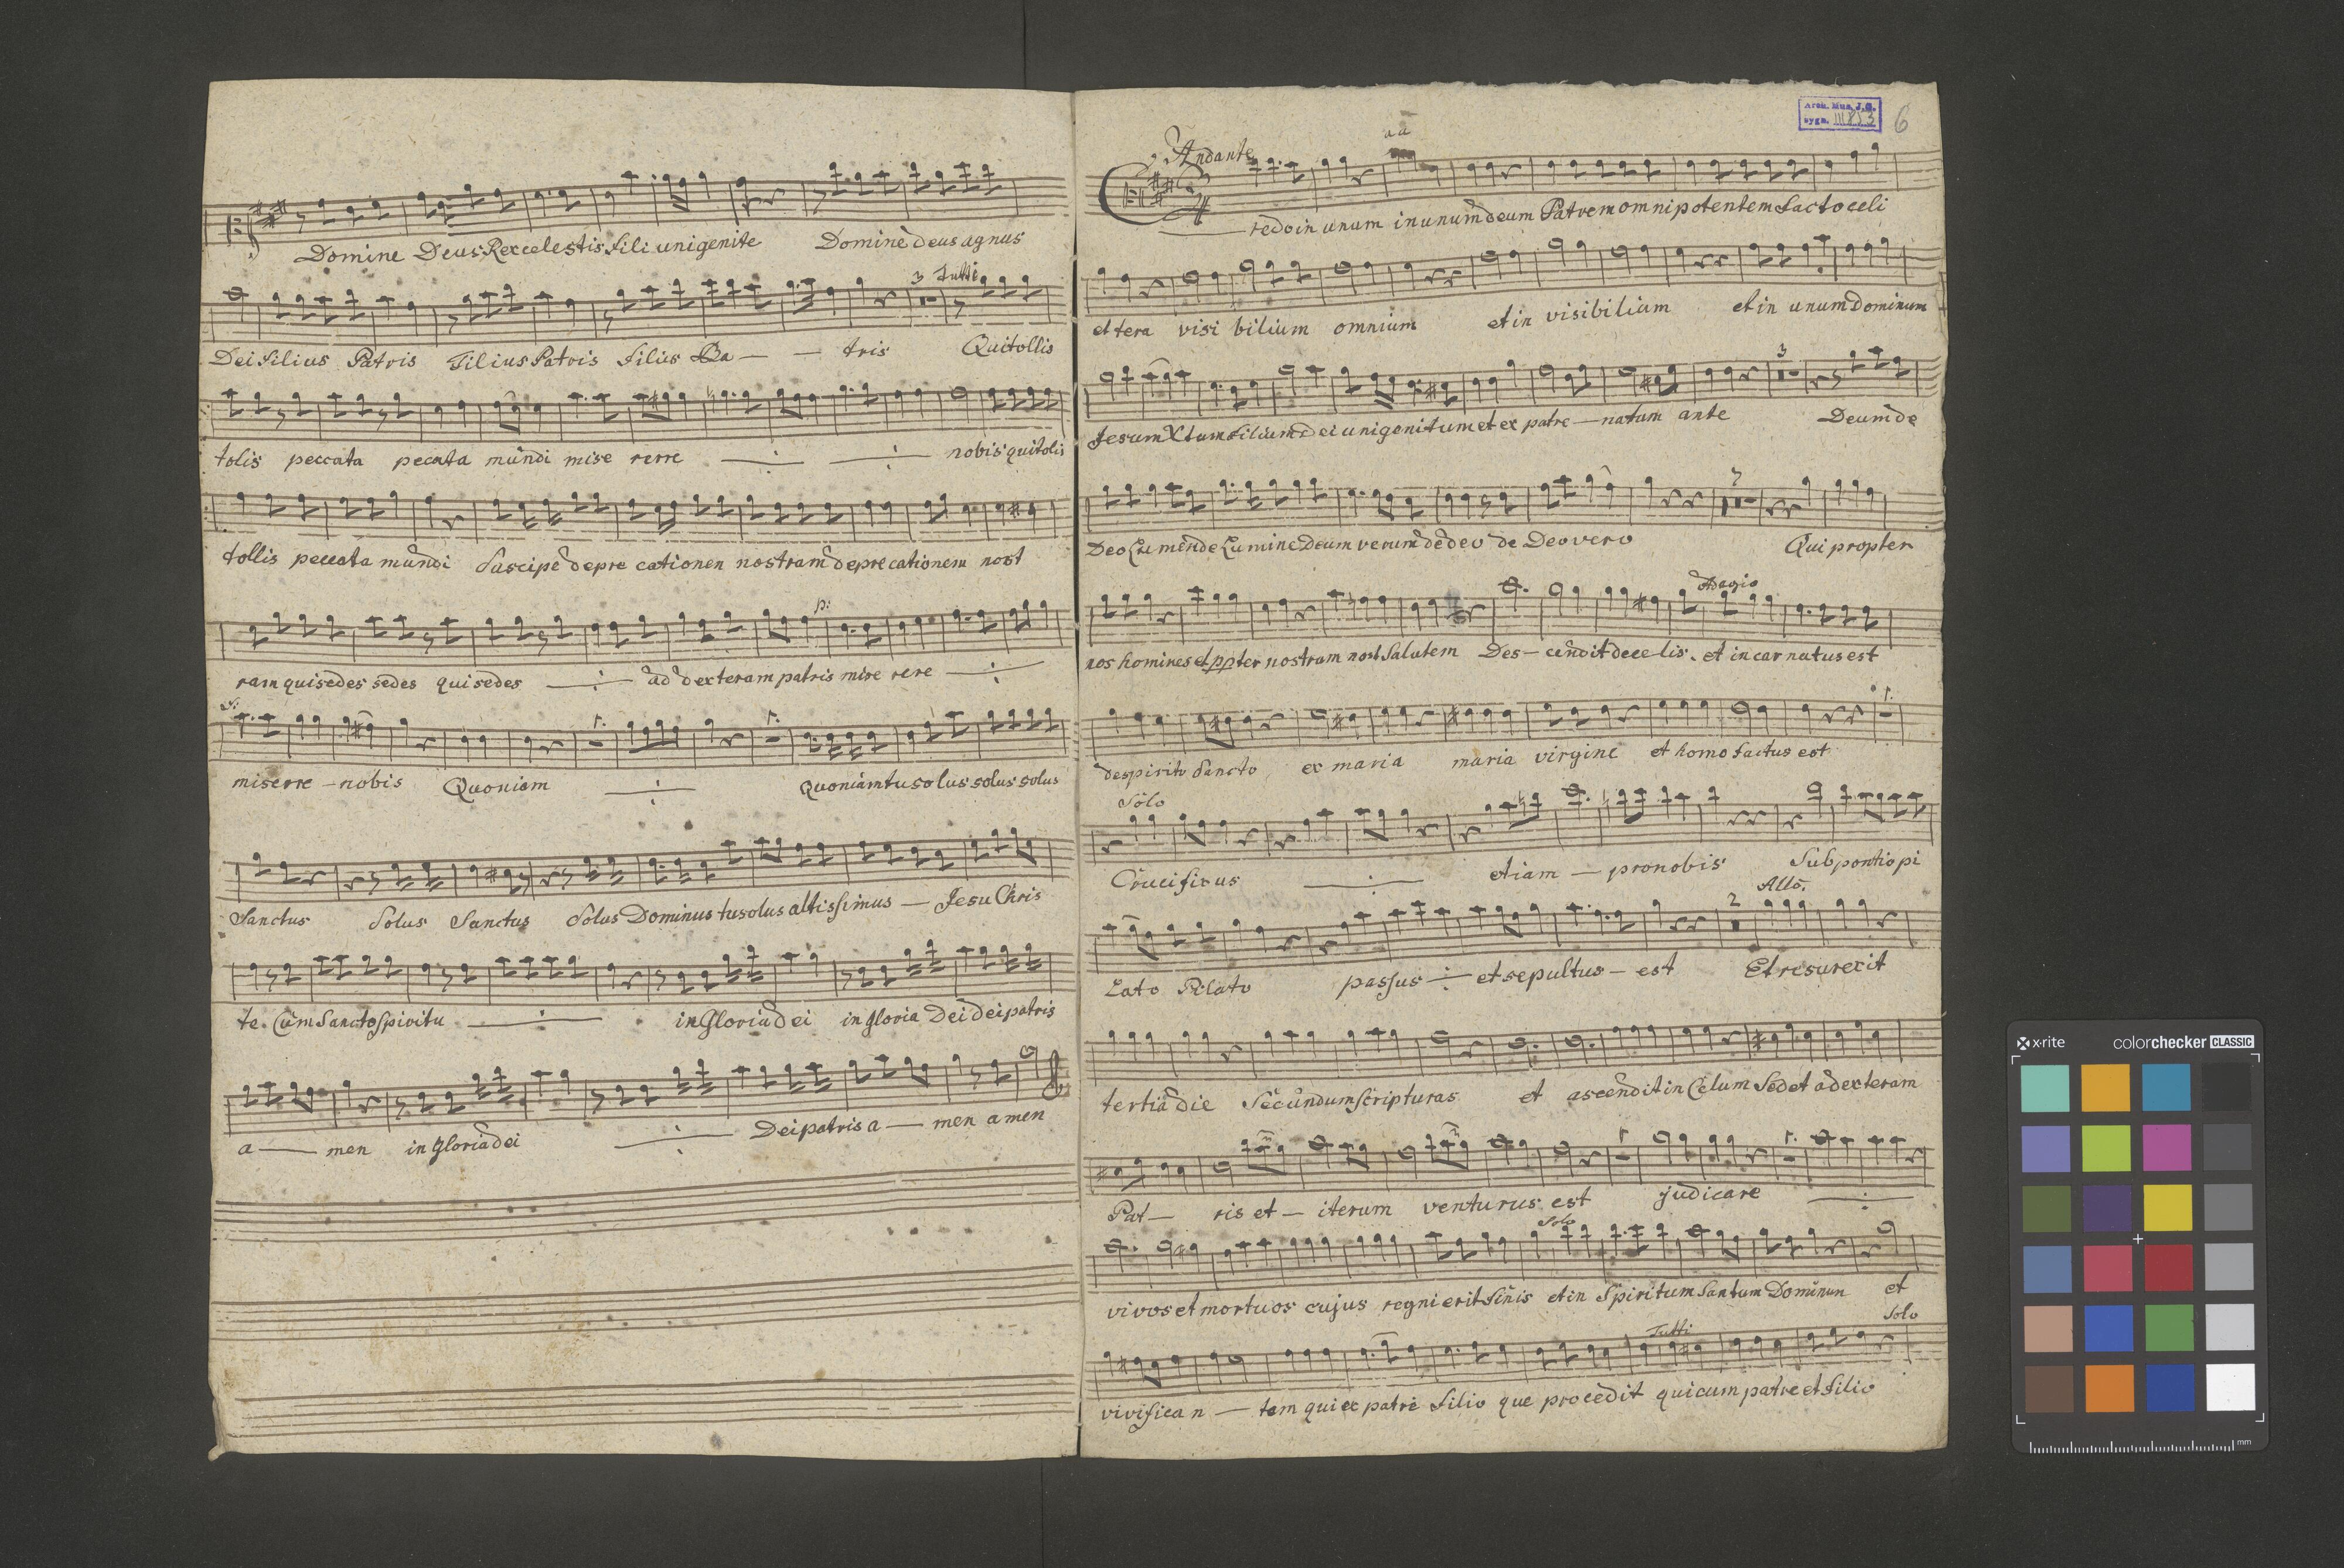 Domine Deus Rex celestis fili unigenite Domine deus agnus
3 Tutti
Dei filius Patris Filius Patris filius Pa — — tris Qui tollis
tolis peccata pecata mundi mise rerre nobis qui tolis
tollis peccata mundi Suscipe depre cationen nostram deprecationem nost
p:
ram qui sedes sedes qui sedes ad dexteram patris mise rere
f:
miserre – nobis Quoniam quoniam tu solus solus solus
Sanctus Solus Sanctus Solus Dominus tu solus altissimus — Jesu Chris
te Cum Sancto Spiritu in Gloria dei in gloria Dei dei patris
a — men in Gloria dei Dei patris a — men amen
Arch. Mus. J.G.
sygn. III 853
6
Andante
3/4
Credo in unum in unum deum Patrem omnipotentem facto celi
et tera visi bilium omnium et in visibilium et in unum Dominum
3
Jesum Xtum filium dei unigenitum et ex patre — natum ante Deum de
7
Deo Lumen de Lumine deum verum de deo de Deo vero Qui propter
Adagio
nos homines et ppter nostram nost Salutem Des — cendit de ce lis. et incarnatus est
de spiritu Sancto ex maria maria virgine et homo factus est
Solo
Crucifixus etiam — pro nobis Sub pontio pi
2 Allo.
Lato Pilato passus et sepultus — est Et resurexit
tertia die Secundum Scripturas et ascendit in Celum Sedet ad exteram
Pat — ris et — iterum venturus est judicare
Solo
vivos et mortuos cujus regni erit finis et in Spiritum Santum Dominum et
Tutti Solo
vivifica n — tem qui ex patre filio que procedit qui cum patre et filio